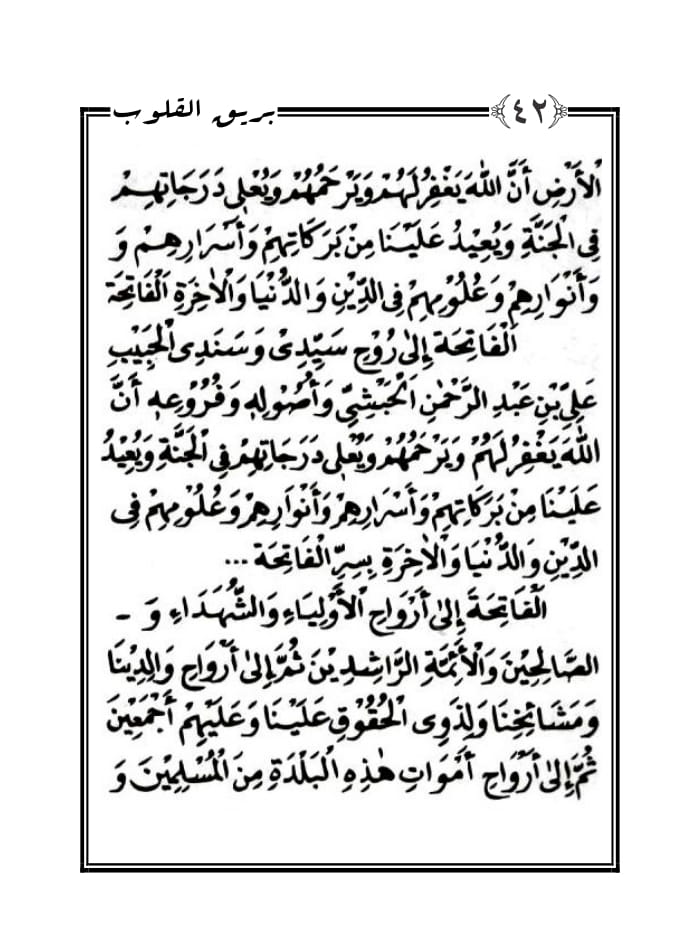 بريق القلوب
٤٢
الْأَرْضِ أَنَّ اللهَ يَغْفِرُ لَهُمْ وَيَرْحَمُهُمْ وَيُعْلِي دَرَجَاتِهِمْ
فِي الْجَنَّةِ وَيُعِيْدُ عَلَيْنَا مِنْ بَرَكَاتِهِمْ وَأَسْرَارِهِمْ وَ
وَأَنْوَارِهِمْ وَعُلُوْمِهِمْ فِي الدِّيْنِ وَالدُّنْيَا وَالْاٰخِرَةِ اَلْفَاتِحَة
اَلْفَاتِحَةَ إِلىٰ رُوْحِ سَيِّدِىْ وَسَنَدِى الْحَبِيْبِ
عَلِيِّ بْنِ عَبْدِ الرَّحْمٰنِ اَلْحَبْشِيِّ وَأُصُوْلِهِ وَفُرُوْعِهِ أَنَّ
اللهَ يَغْفِرُ لَهُمْ وَيَرْحَمُهُمْ وَيُعْلِي دَرَجَاتِهِمْ فِي الْجَنَّةِ وَيُعِيْدُ
عَلَيْنَا مِنْ بَرَكَاتِهِمْ وَأَسْرَارِهِمْ وَأَنْوَارِهِمْ وَعُلُوْمِهِمْ فِي
الدِّيْنِ وَالدُّنْيَا وَالْاٰخِرَةِ بِسِرِّ الْفَاتِحَة ...
اَلْفَاتِحَةَ إِلىٰ أَرْوَاحِ الْأَوْلِيَاءِ وَالشُّهَدَاءِ وَ -
الصَّالِحِيْنَ وَالْأَئِمَّةِ الرَّاشِدِيْنَ ثُمَّ إِلىٰ أَرْوَاحِ وَالِدِيْنَا
وَمَشَائِخِنَا وَلِذَوِى الْحُقُوْقِ عَلَيْنَا وَعَلَيْهِمْ أَجْمَعِيْنَ
ثُمَّ إِلىٰ أَرْوَاحِ أَمْوَاتِ هٰذِهِ الْبَلْدَةِ مِنَ الْمُسْلِمِيْنَ وَ